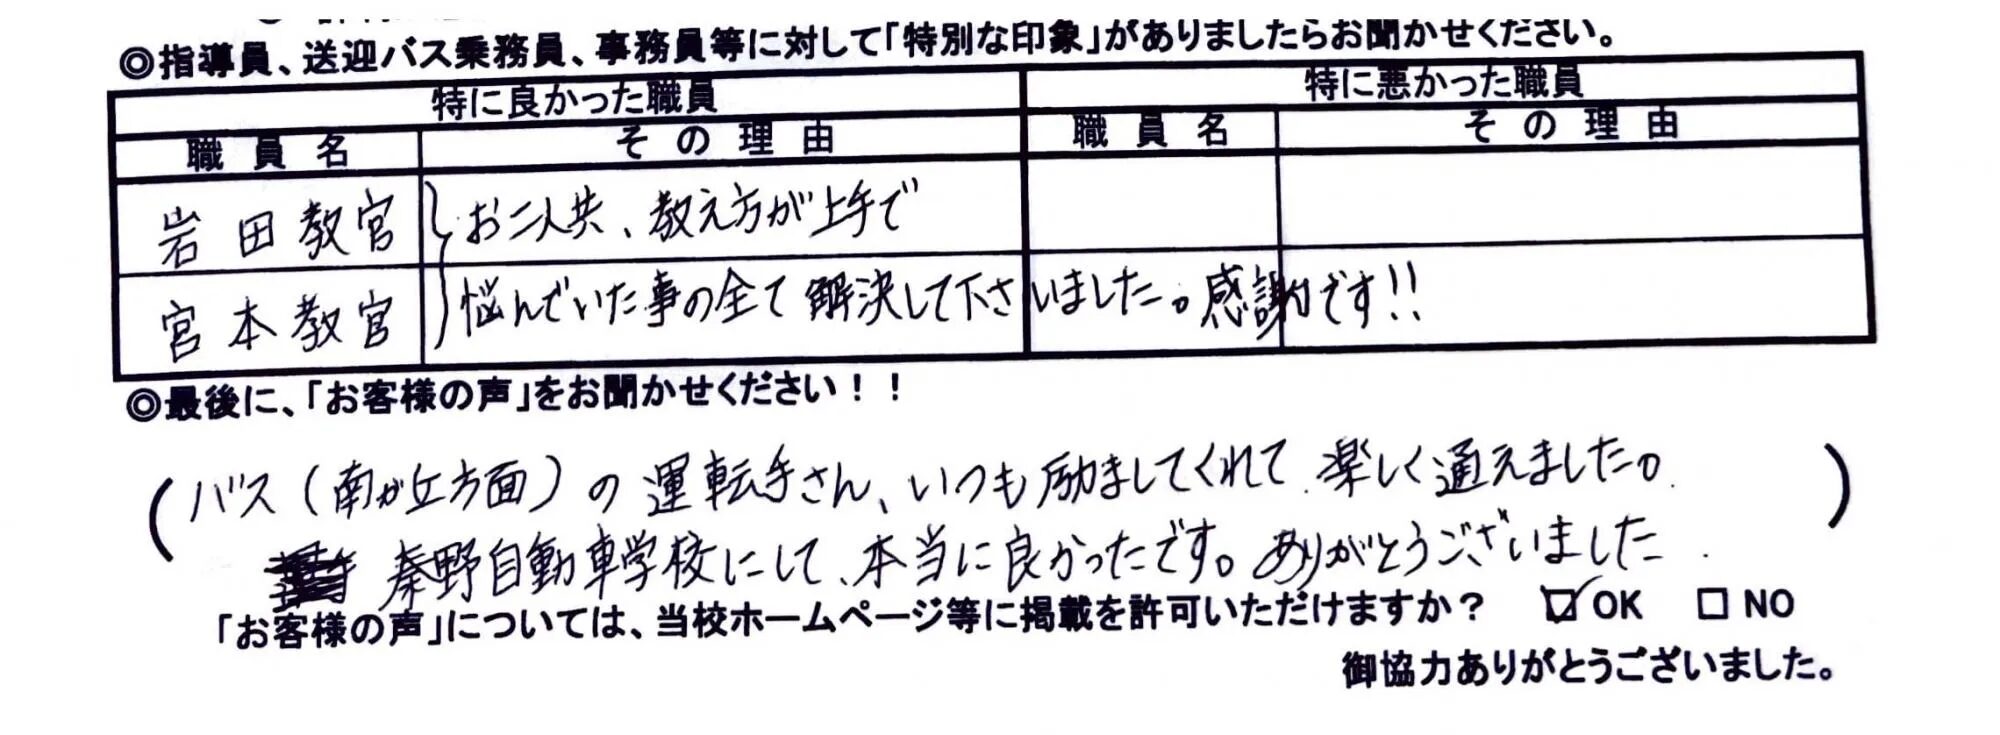 ◎指導員、送迎バス乗務員、事務員等に対して「特別な印象」がありましたらお聞かせください。
特に良かった職員 特に悪かった職員
職員名 その理由 職員名 その理由
岩田教官 お二人共、教え方が上手で
宮本教官 悩んでいた事の全て解決して下さいました。感謝です!!
◎最後に、「お客様の声」をお聞かせください!!
(バス(南が丘方面)の運転手さん、いつも励ましてくれて、楽しく通えました。)
秦野自動車学校にして、本当に良かったです。ありがとうございました.
「お客様の声」については、当校ホームページ等に掲載を許可いただけますか? ☑OK □NO
御協力ありがとうございました。